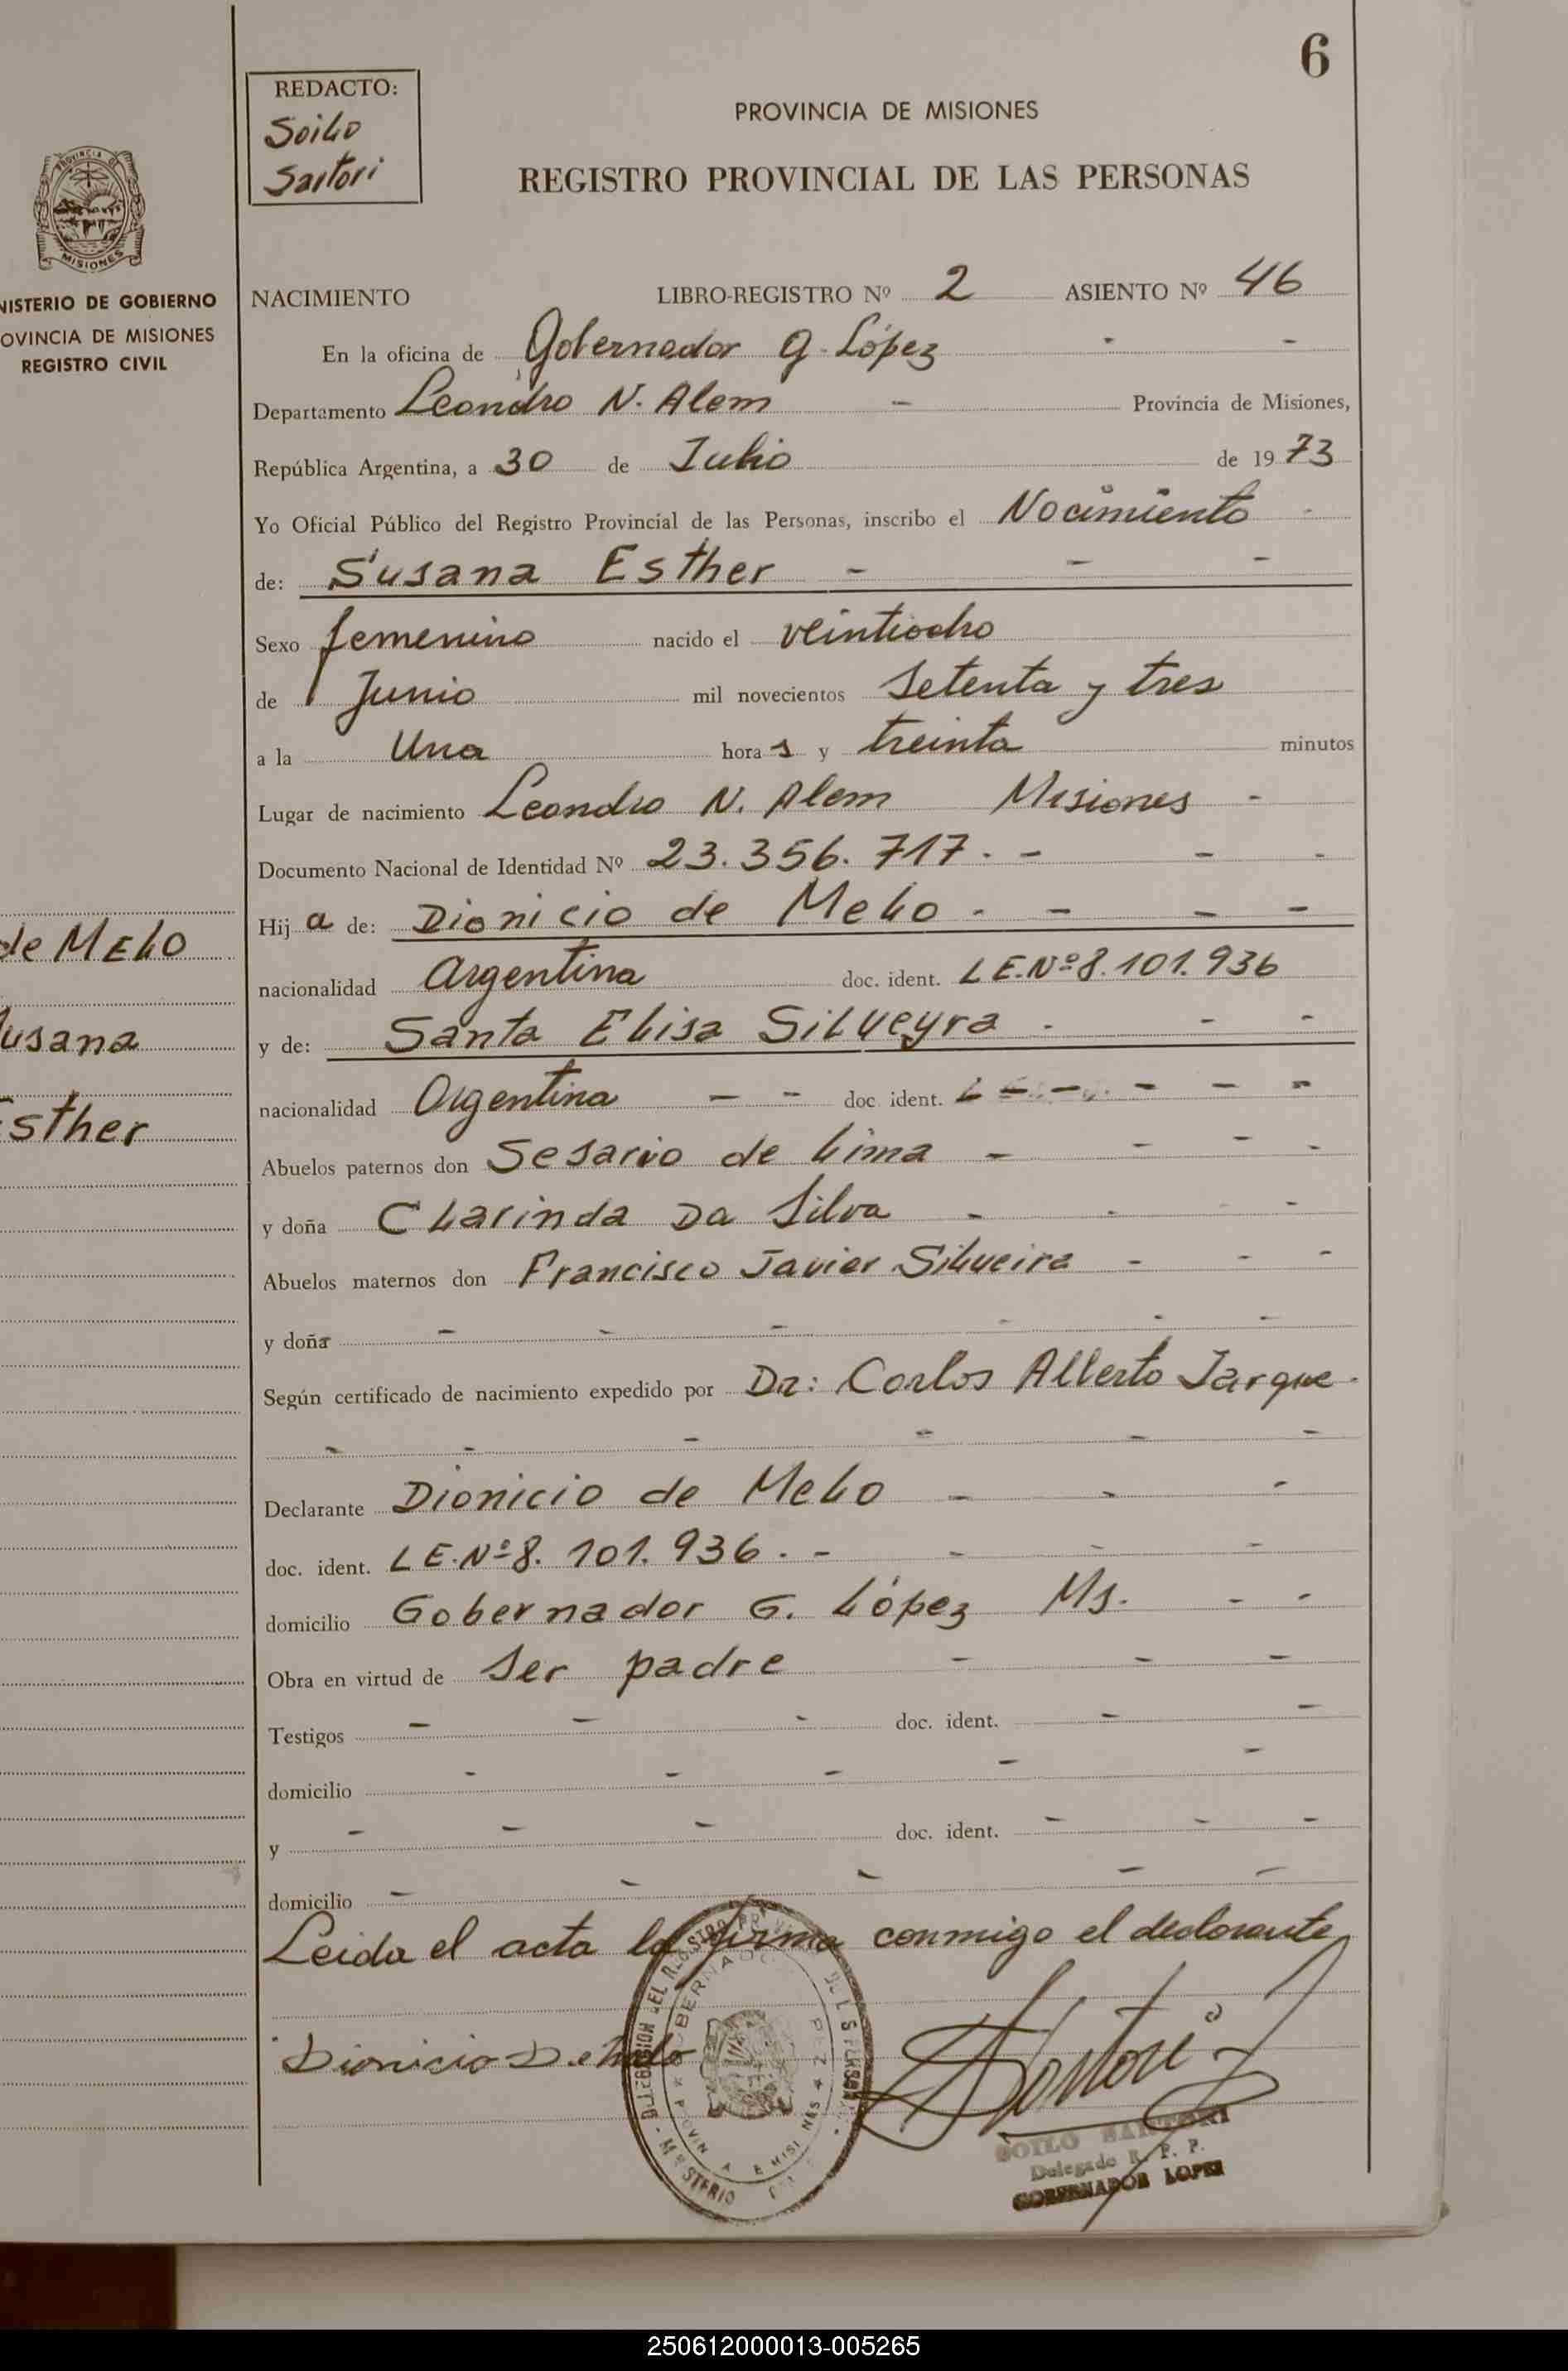 6
REDACTO:
Soilo
Sartori
PROVINCIA DE MISIONES
REGISTRO PROVINCIAL DE LAS PERSONAS
PROVINCIA DE
MISIONES
NISTERIO DE GOBIERNO
OVINCIA DE MISIONES
REGISTRO CIVIL
NACIMIENTO LIBRO-REGISTRO Nº 2 ASIENTO Nº 46
En la oficina de Gobernador G. López - -
Departamento Leandro N. Alem - Provincia de Misiones,
República Argentina, a 30 de Julio de 1973
Yo Oficial Público del Registro Provincial de las Personas, inscribo el Nacimiento -
de: Susana Esther - - -
Sexo femenino nacido el veintiocho
de Junio mil novecientos setenta y tres
a la Una horas y treinta minutos
Lugar de nacimiento Leandro N. Alem Misiones -
Documento Nacional de Identidad Nº 23.356.717. - - -
Hija de: Dionicio de Melo - - - -
de MELO
nacionalidad Argentina doc. ident. L E. Nº 8.101.936
y de: Santa Elisa Silveyra - - -
usana
nacionalidad Argentina - - doc. ident. - - - -
sther
Abuelos paternos don Sesario de Lima - - - -
y doña Clarinda Da Silva - - -
Abuelos maternos don Francisco Javier Silveira - - -
y doña - - - - -
Según certificado de nacimiento expedido por Dr: Carlos Alberto Jarque -
- - - - - -
Declarante Dionicio de Melo - - -
doc. ident. L E. Nº 8. 101. 936. - - - -
domicilio Gobernador G. López Ms. - -
Obra en virtud de ser padre - - -
Testigos - - - doc. ident. - -
domicilio - - - - -
y - - - doc. ident. - - -
domicilio - - - - -
Leida el acta la firma conmigo el declarante
Dionicio De Melo
Sartori
SOILO SARTORI
Delegado R. P. P.
GOBERNADOR LOPEZ
250612000013-005265